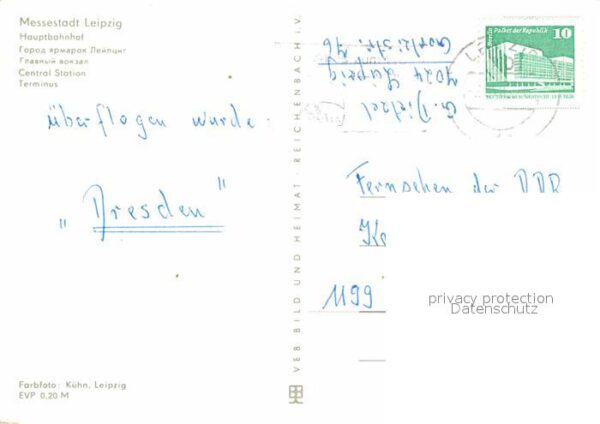 Messestadt Leipzig
Hauptbahnhof
Город ярмарок Лейпциг
Главный вокзал
Central Station
Terminus
überflogen wurde:
„Dresden"
Farbfoto: Kühn, Leipzig
EVP 0,20 M
VEB BILD UND HEIMAT · REICHENBACH i. V.
G. Dietzel
7024 Leipzig
Berlin Palast der Republik
10
DEUTSCHE DEMOKRATISCHE REPUBLIK
Fernsehen der DDR
1199
privacy protection
Datenschutz